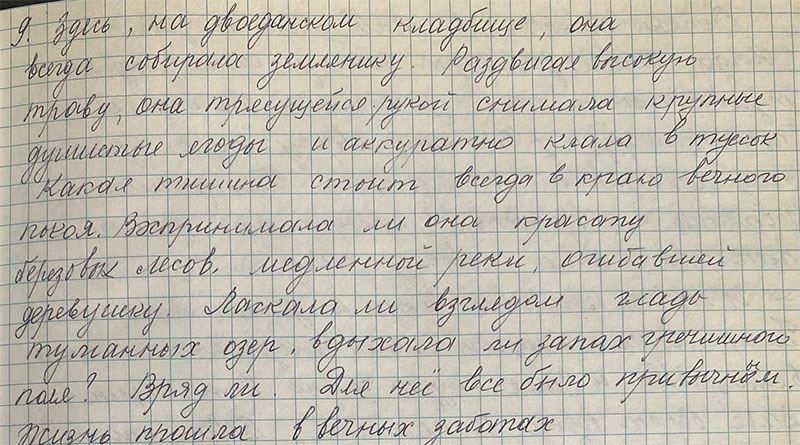 9. Здесь, на двоеданском кладбище, она
всегда собирала землянику. Раздвигая высокую
траву, она трясущейся рукой снимала крупные
душистые ягоды и аккуратно клала в туесок
Какая тишина стоит всегда в краю вечного
покоя. Воспринимала ли она красоту
берёзовых лесов, медленной реки, огибавшей
деревушку. Ласкала ли взглядом гладь
туманных озер, вдыхала ли запах гречишного
поля? Вряд ли. Для неё все было привычным.
Жизнь прошла в вечных заботах